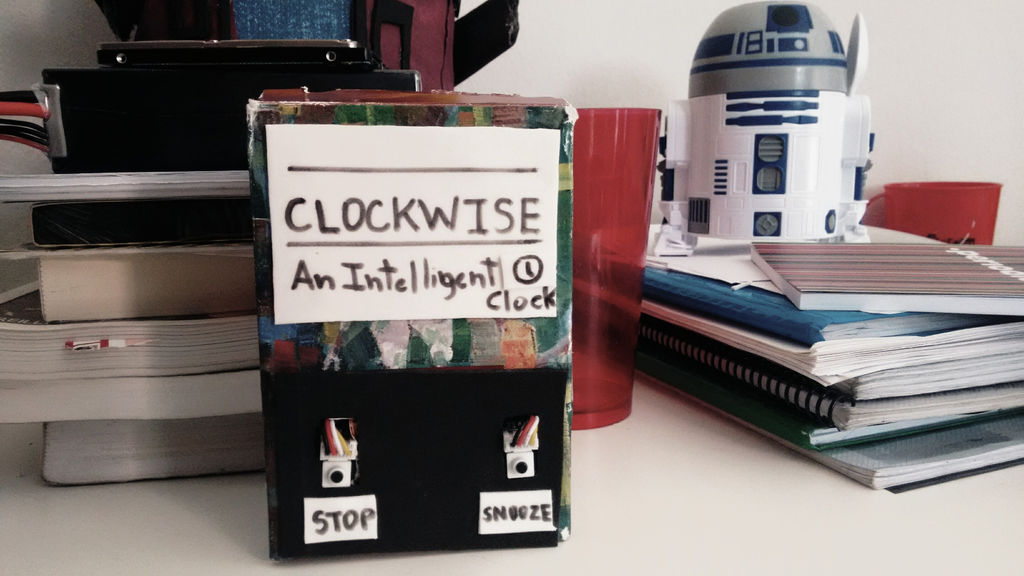 CLOCKWISE
An Intelligent
Clock
STOP
SNOOZE